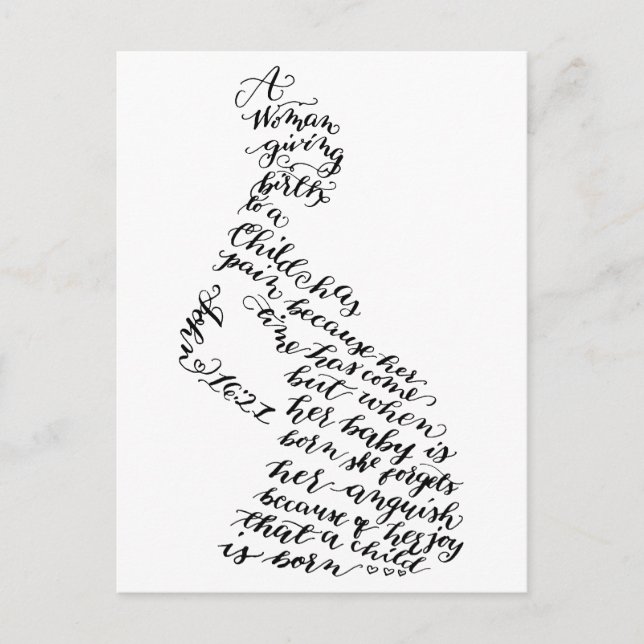 A
Woman
giving
birth
to a
Child has
pain because her
time has come
but when
her baby is
born she forgets
her anguish
because of her joy
that a child
is born
John 16:21